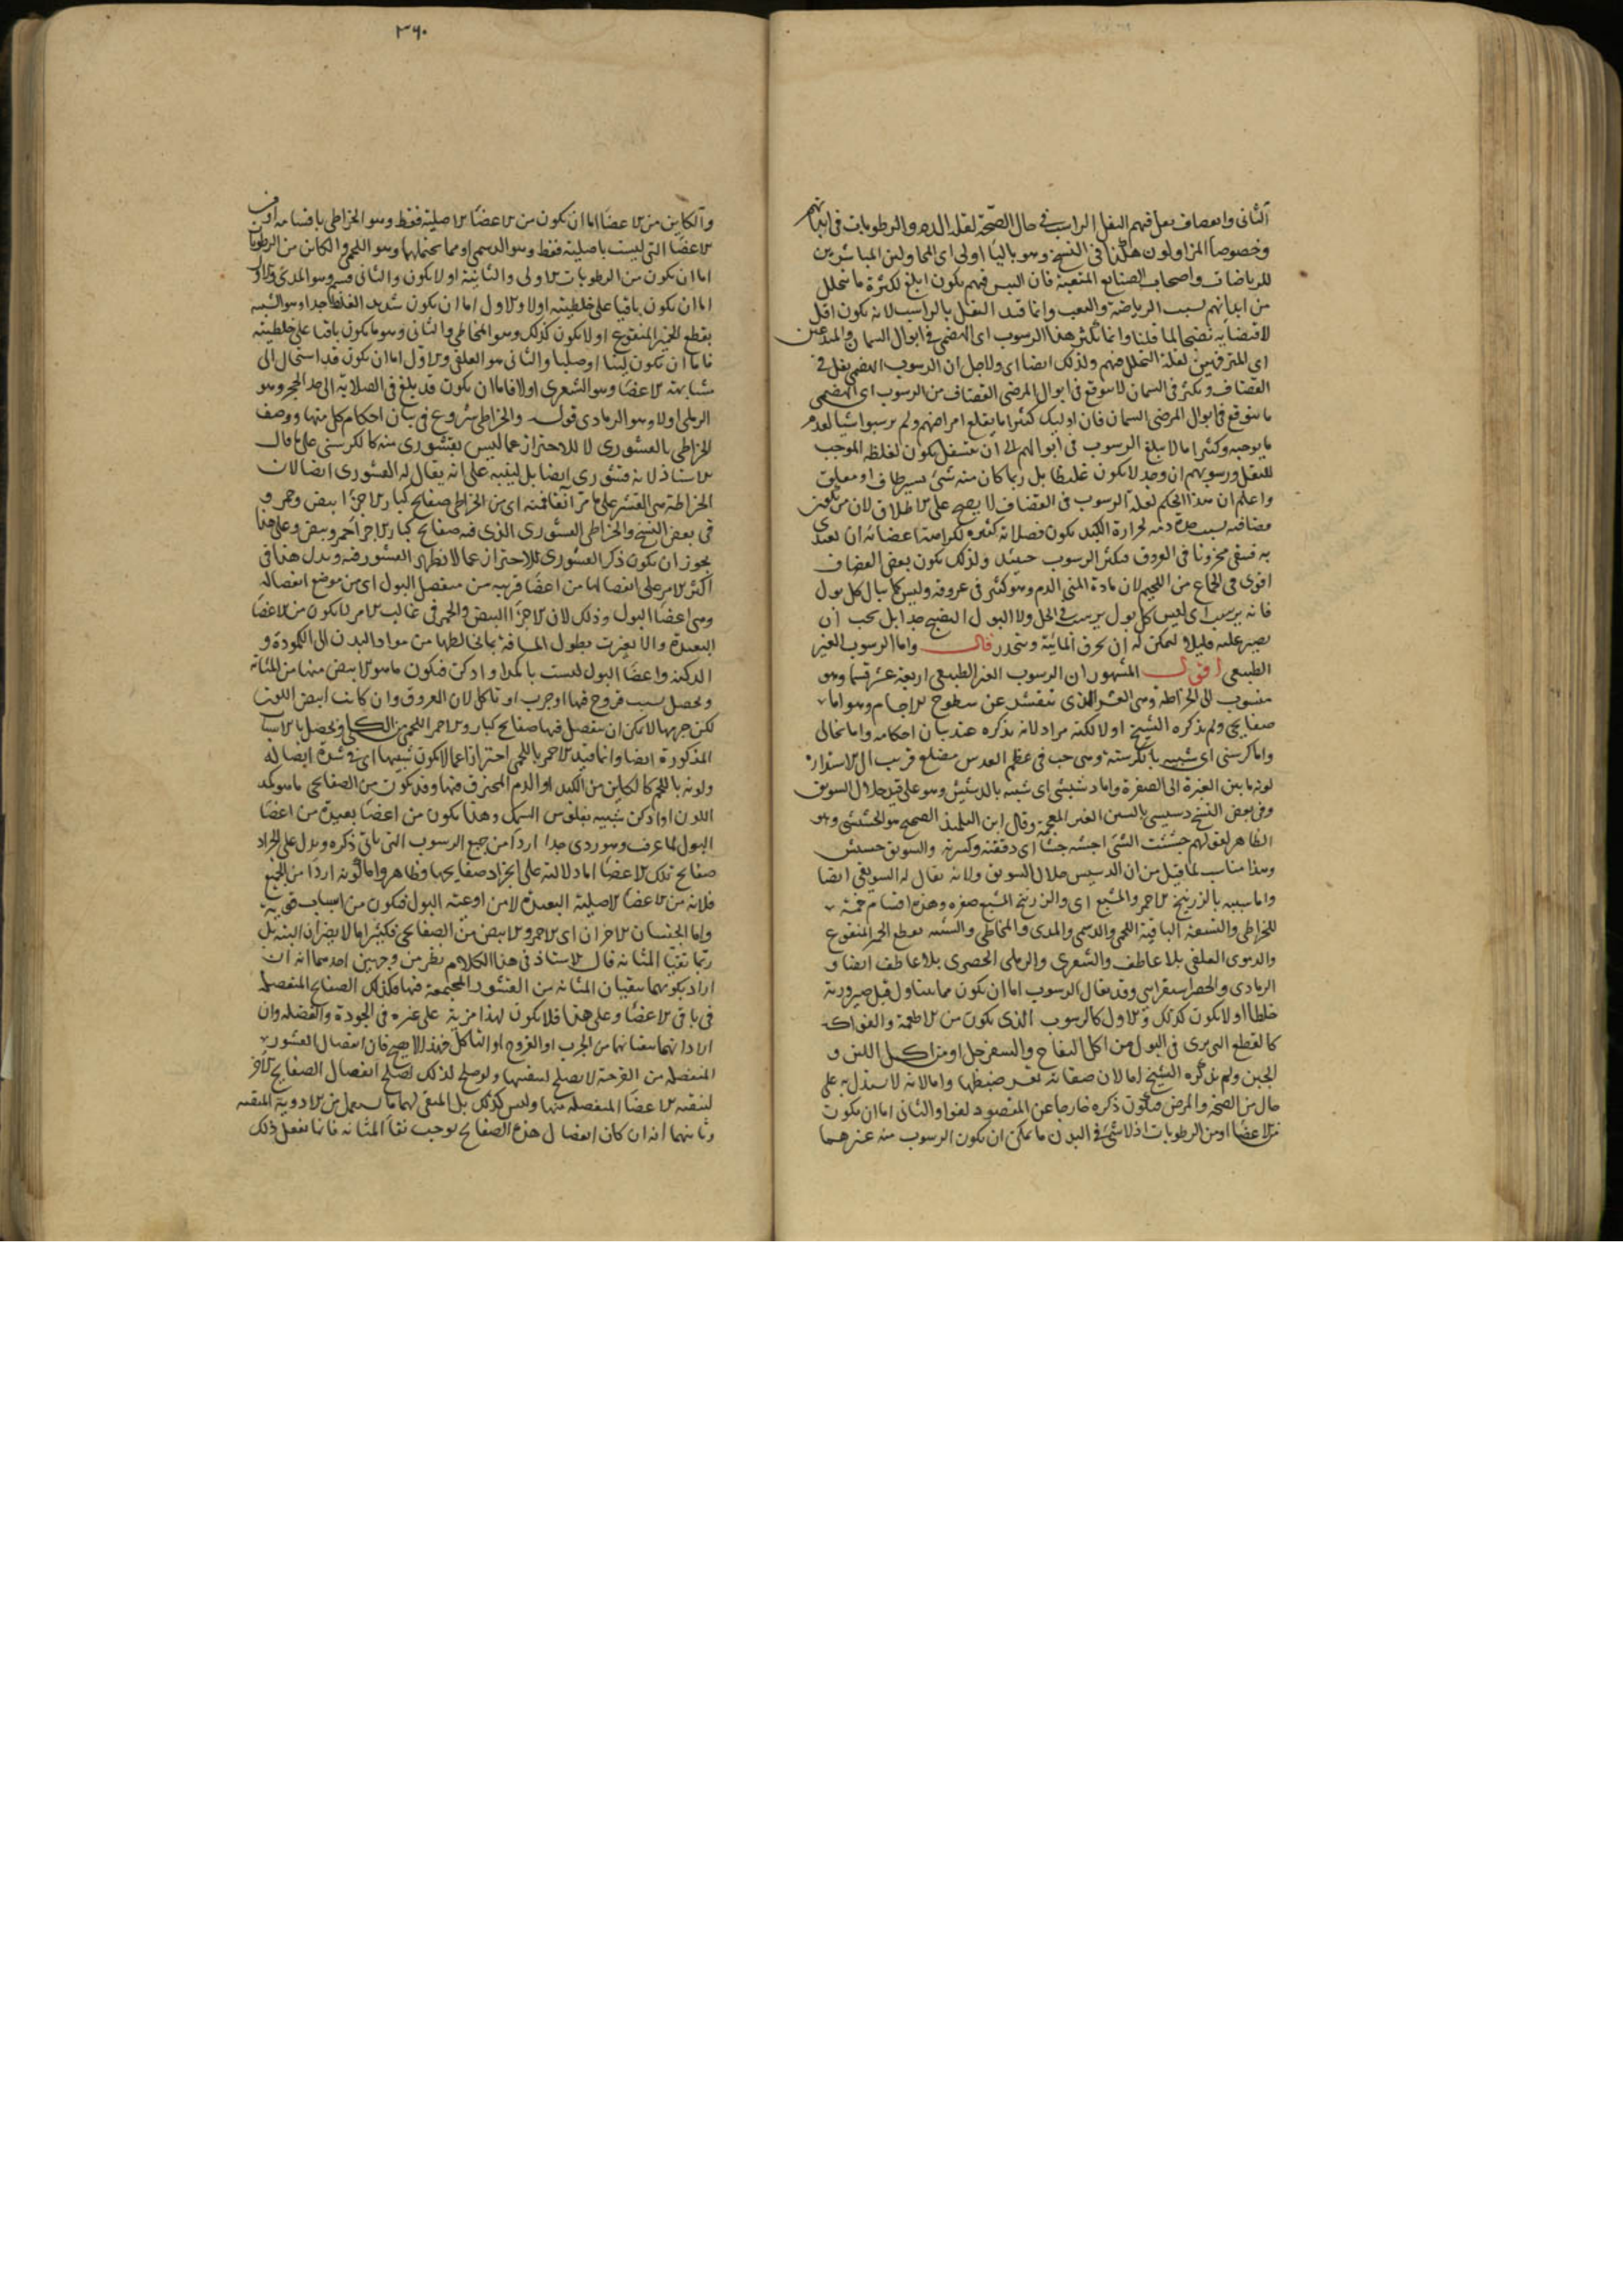 الثانى والقضاف يقل فيهم الثفل الراسب فى حال الصحة لقلة الدم والرطوبات فى ابدانهم
وخصوصا المزاولون هكذا فى النسخ وهو بالياء اولى اى المحاولين المباشرين
للرياضات واصحاب الصنايع المتعبة فان اليبس فيهم يكون ابلغ لكثرة ما يتحلل
من ابدانهم بسبب الرياضة والتعب وانما قيد الثفل بالراسب لانه يكون اقل
لاقتضايه نضجا لما قلنا وانما يكثر هذا الرسوب اى الهضمى فى ابوال السمان والمتدعين
اى المترفهين لقلة التحلل منهم ولذلك ايضا اى ولاجل ان الرسوب الهضمى يقل فى
القضاف ويكثر فى السمان لا يتوقع فى ابوال المرضى القضاف من الرسوب اى الهضمى
ما يتوقع فى ابوال المرضى السمان فان اوليك كثيرا ما يقلع امراضهم ولم يرسبوا شيا لعدم
ما يوجبه وكثيرا ما لا يبلغ الرسوب فى ابوالهم الى ان يتسفل يكون لغلظه الموجب
للثقل ورسوبهم ان وجد لا يكون غليظا بل ربما كان منه شئ يسير طاف او معلق
واعلم ان هذا الحكم لقلة الرسوب فى القضاف لا يصح على الاطلاق لان من يكون
قضافته بسبب حدة دمه لحرارة الكبد يكون فضلاته كثيرة لكراهة اعضائه ان تغتذى
به فيبقى مخزونا فى العروق فيكثر الرسوب حينئذ ولذلك يكون بعض القضاف
اقوى فى الجماع من اللحيم لان مادة المنى الدم وهو كثير فى عروقه وليس كل ما يبال كل بول
فانه يرسب اى ليس كل بول يرسب فى الحال ولا البول النضيج جدا بل يجب ان
يصبر عليه قليلا ليمكن له ان يخرق المائية وينحدر قال واما الرسوب الغير
الطبيعى اقول المشهور ان الرسوب الغير الطبيعى اربعة عشر قسما وهو
منسوب الى الخراطة وهى القشر الذى ينقشر عن سطوح الاجسام وهو اما
صفايحى ولم يذكره الشيخ اولا لكنه مراد لانه يذكره عند بيان احكامه واما نخالى
واما كرسنى اى شبيه بالكرسنة وهى حب فى عظم العدس مضلع قريب الى الاستدارة
لونه ما بين الغبرة الى الصفرة واما دشيشى اى شبيه بالدشيش وهو على قيل جلال السويق
وفى بعض النسخ دسيسى بالسين الغير المعجمة وقال ابن التلميذ الصحيح هو الجشيشى وهو
الظاهر لقولهم جششت الشئ اجشه جشا اى دققته وكسرته والسويق جشيش
وهذا مناسب لما قيل من ان الدسيس جلال السويق ولانه يقال له السويقى ايضا
واما شبيه بالزرنيخ الاحمر والمشبع اى والزرنيخ المشبع صفره وهذه اقسام خمسة
للخراطى والتسعة الباقية اللحمى والدسمى والمدى والمخاطى والشبيه بقطع الخمير المنقوع
والدموى العلقى بلا عاطف والشعرى والرملى الحصوى بلا عاطف ايضا و
الرمادى والحصر استقرائى وقد يقال الرسوب اما ان يكون مما يتناول قبل صيرورته
خلطا او لا يكون كذلك والاول كالرسوب الذى يكون من الاطعمة والفواكه
كالقطع التى يرى فى البول من اكل التفاح والسفرجل او من اكل اللبن و
الجبن ولم يذكره الشيخ اما لان صفاته تعسر ضبطها واما لانه لا يستدل به على
حال من الصحة والمرض فيكون ذكره خارجا عن المقصود لغوا والثانى اما ان يكون
من الاعضا او من الرطوبات اذ لا شئ فى البدن ما يمكن ان يكون الرسوب منه غيرهما
٣٦٠
والكاين من الاعضا اما ان يكون من الاعضا الاصلية فقط وهو الخراطى باقسامه او من
الاعضا التى ليست باصلية فقط وهو الدسمى او مما يحتملها وهو اللحمى والكاين من الرطوبات
اما ان يكون من الرطوبات الاولى والثانية او لا يكون والثانى فسر وهو المدى والاول
اما ان يكون باقيا على خلطيته اولا والاول اما ان يكون شديد الغلظ جدا وهو الشبيه
بقطع الخمير المنقوع او لا يكون كذلك وهو المخاطى والثانى وهو ما يكون باقيا على خلطيته
فاما ان يكون لينا او صلبا والثانى هو العلقى والاول اما ان يكون قد استحال الى
مشابهة الاعضا وهو الشعرى اولا فاما ان يكون قد بلغ فى الصلابة الى حد الحجر وهو
الرملى اولا وهو الرمادى قوله والخراطى شروع فى بيان احكام كل منها ووصف
الخراطى بالقشورى لا للاحتراز عما ليس بقشورى منه كالكرسنى على ما قال
الاستاذ لانه قشورى ايضا بل لينبه على انه يقال له القشورى ايضا لان
الخراطة هى القشر على ما مر آنفا فمنه اى من الخراطى صفايح كبار الاجزا ابيض وحمر و
فى بعض النسخ والخراطى القشورى الذى فيه صفايح كبار الاجزا احمر وبيض وعلى هذا
يجوز ان يكون ذكر القشورى للاحتراز عما لا يظهر القشور فيه ويدل هذا فى
اكثر الامر على انفصالها من اعضا قريبة من منفصل البول اى من موضع انفصاله
وهى اعضا البول وذلك لان الاجزا البيض والحمر فى غالب الامر لا يكون من الاعضا
البعيدة والا لغيرت بطول المسافة بما يخالطها من مواد البدن الى الكمودة و
الدكنة واعضا البول ليست بالمدا وادكن فيكون ما هو الابيض منها من المثانة
ويحصل بسبب قروح فيها او جرب او تاكل لان العروق وان كانت ابيض اللون
لكن جرمها لا يمكن ان ينفصل فيها صفايح كبار والاحمر اللحمى من الكلى ويحصل بالاسباب
المذكورة ايضا وانما قيد الاحمر باللحمى احترازا عما لا يكون شبيها اى فى شدة ايضاله
ولونه باللحم كالكاين من الكبد او الدم المحترق فيها وقد يكون من الصفايحى ما هو كمد
اللون او ادكن شبيه بفلوس السمك وهذا يكون من اعضا بعيدة من اعضا
البول لما عرف وهو ردى جدا اردأ من جميع الرسوب التى ياتى ذكره ويدل على انجراد
صفايح تلك الاعضا اما دلالته على انجراد صفايحها فظاهر واما كونه اردا من الجميع
فلانه من الاعضا الاصلية البعيدة لا من اوعية البول فيكون من اسباب قوية
واما الجنسان الاخران اى الاحمر والابيض من الصفايحى فكثيرا ما لا يضران البتة بل
ربما نقيا المثانة قال الاستاذ فى هذا الكلام نظر من وجهين احدهما انه ان
اراد بكونهما ينقيان المثانة من القشور المجتمعة فيها فكذلك الصفايح المنفصلة
فى باقى الاعضا وعلى هذا فلا يكون لهذا مزية على غيره فى الجودة والفضيلة وان
اراد انهما ينقيانها من الجرب او القروح او التاكل فهذا لا يصح فان انفصال القشور
المنفصلة من القرحة لا يصلح لتنقيتها ولو صلح لذلك لصلح انفصال الصفايح الاخر
لتنقية الاعضا المنفصلة منها وليس كذلك بل المنقى لها ما يستعمل من الادوية المنقية
وثانيهما انه ان كان انفصال هذه الصفايح يوجب نقا المثانة فانما يفعل ذلك